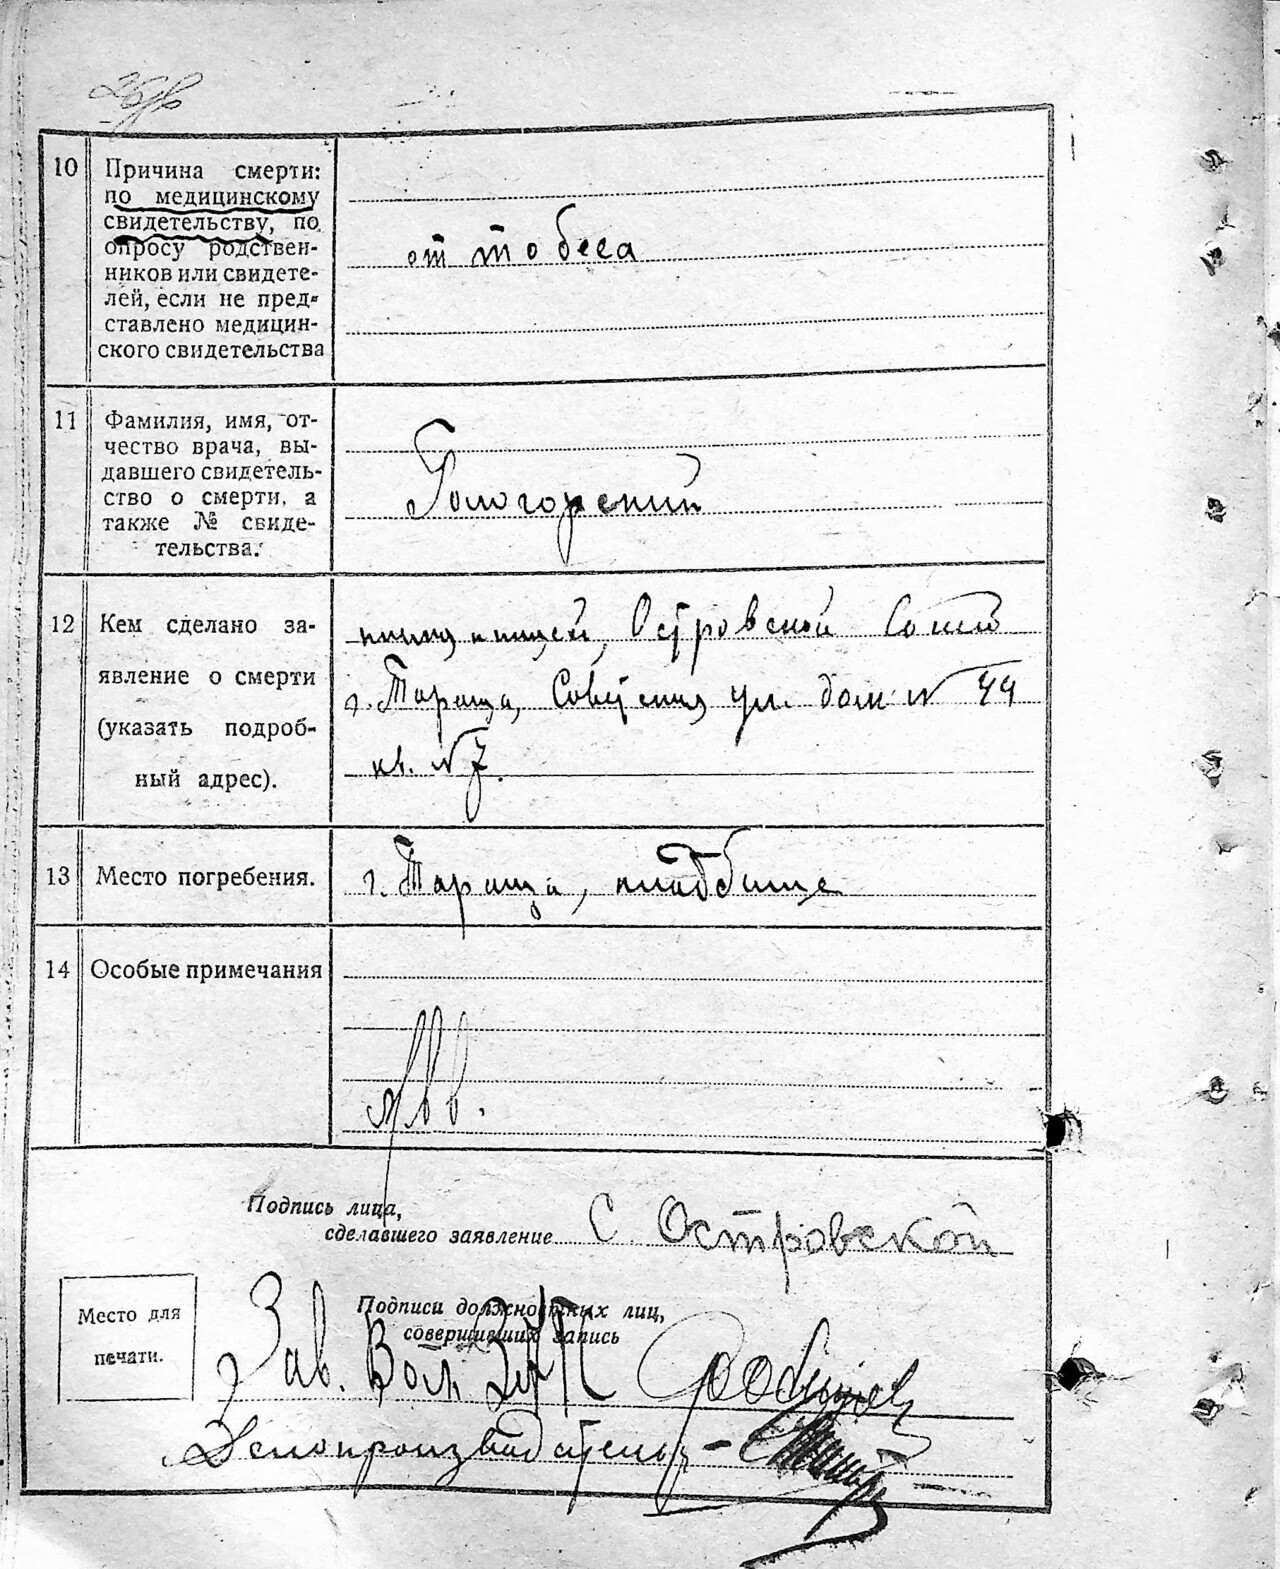 10
Причина смерти:
по медицинскому
свидетельству, по
опросу родствен-
ников или свидете-
лей, если не пред-
ставлено медицин-
ского свидетельства
от тобеса
11
Фамилия, имя, от-
чество врача, вы-
давшего свидетель-
ство о смерти, а
также № свиде-
тельства.
Гологорский
12
Кем сделано за-
явление о смерти
(указать подроб-
ный адрес).
Островской
г. Тараща, Советская ул. дом № 44
кв. № 7.
13
Место погребения.
г. Тараща, кладбище
14
Особые примечания
Подпись лица,
сделавшего заявление С Островской
Место для
печати.
Подписи должностных лиц,
совершивших запись
Зав.
Делопроизводитель -